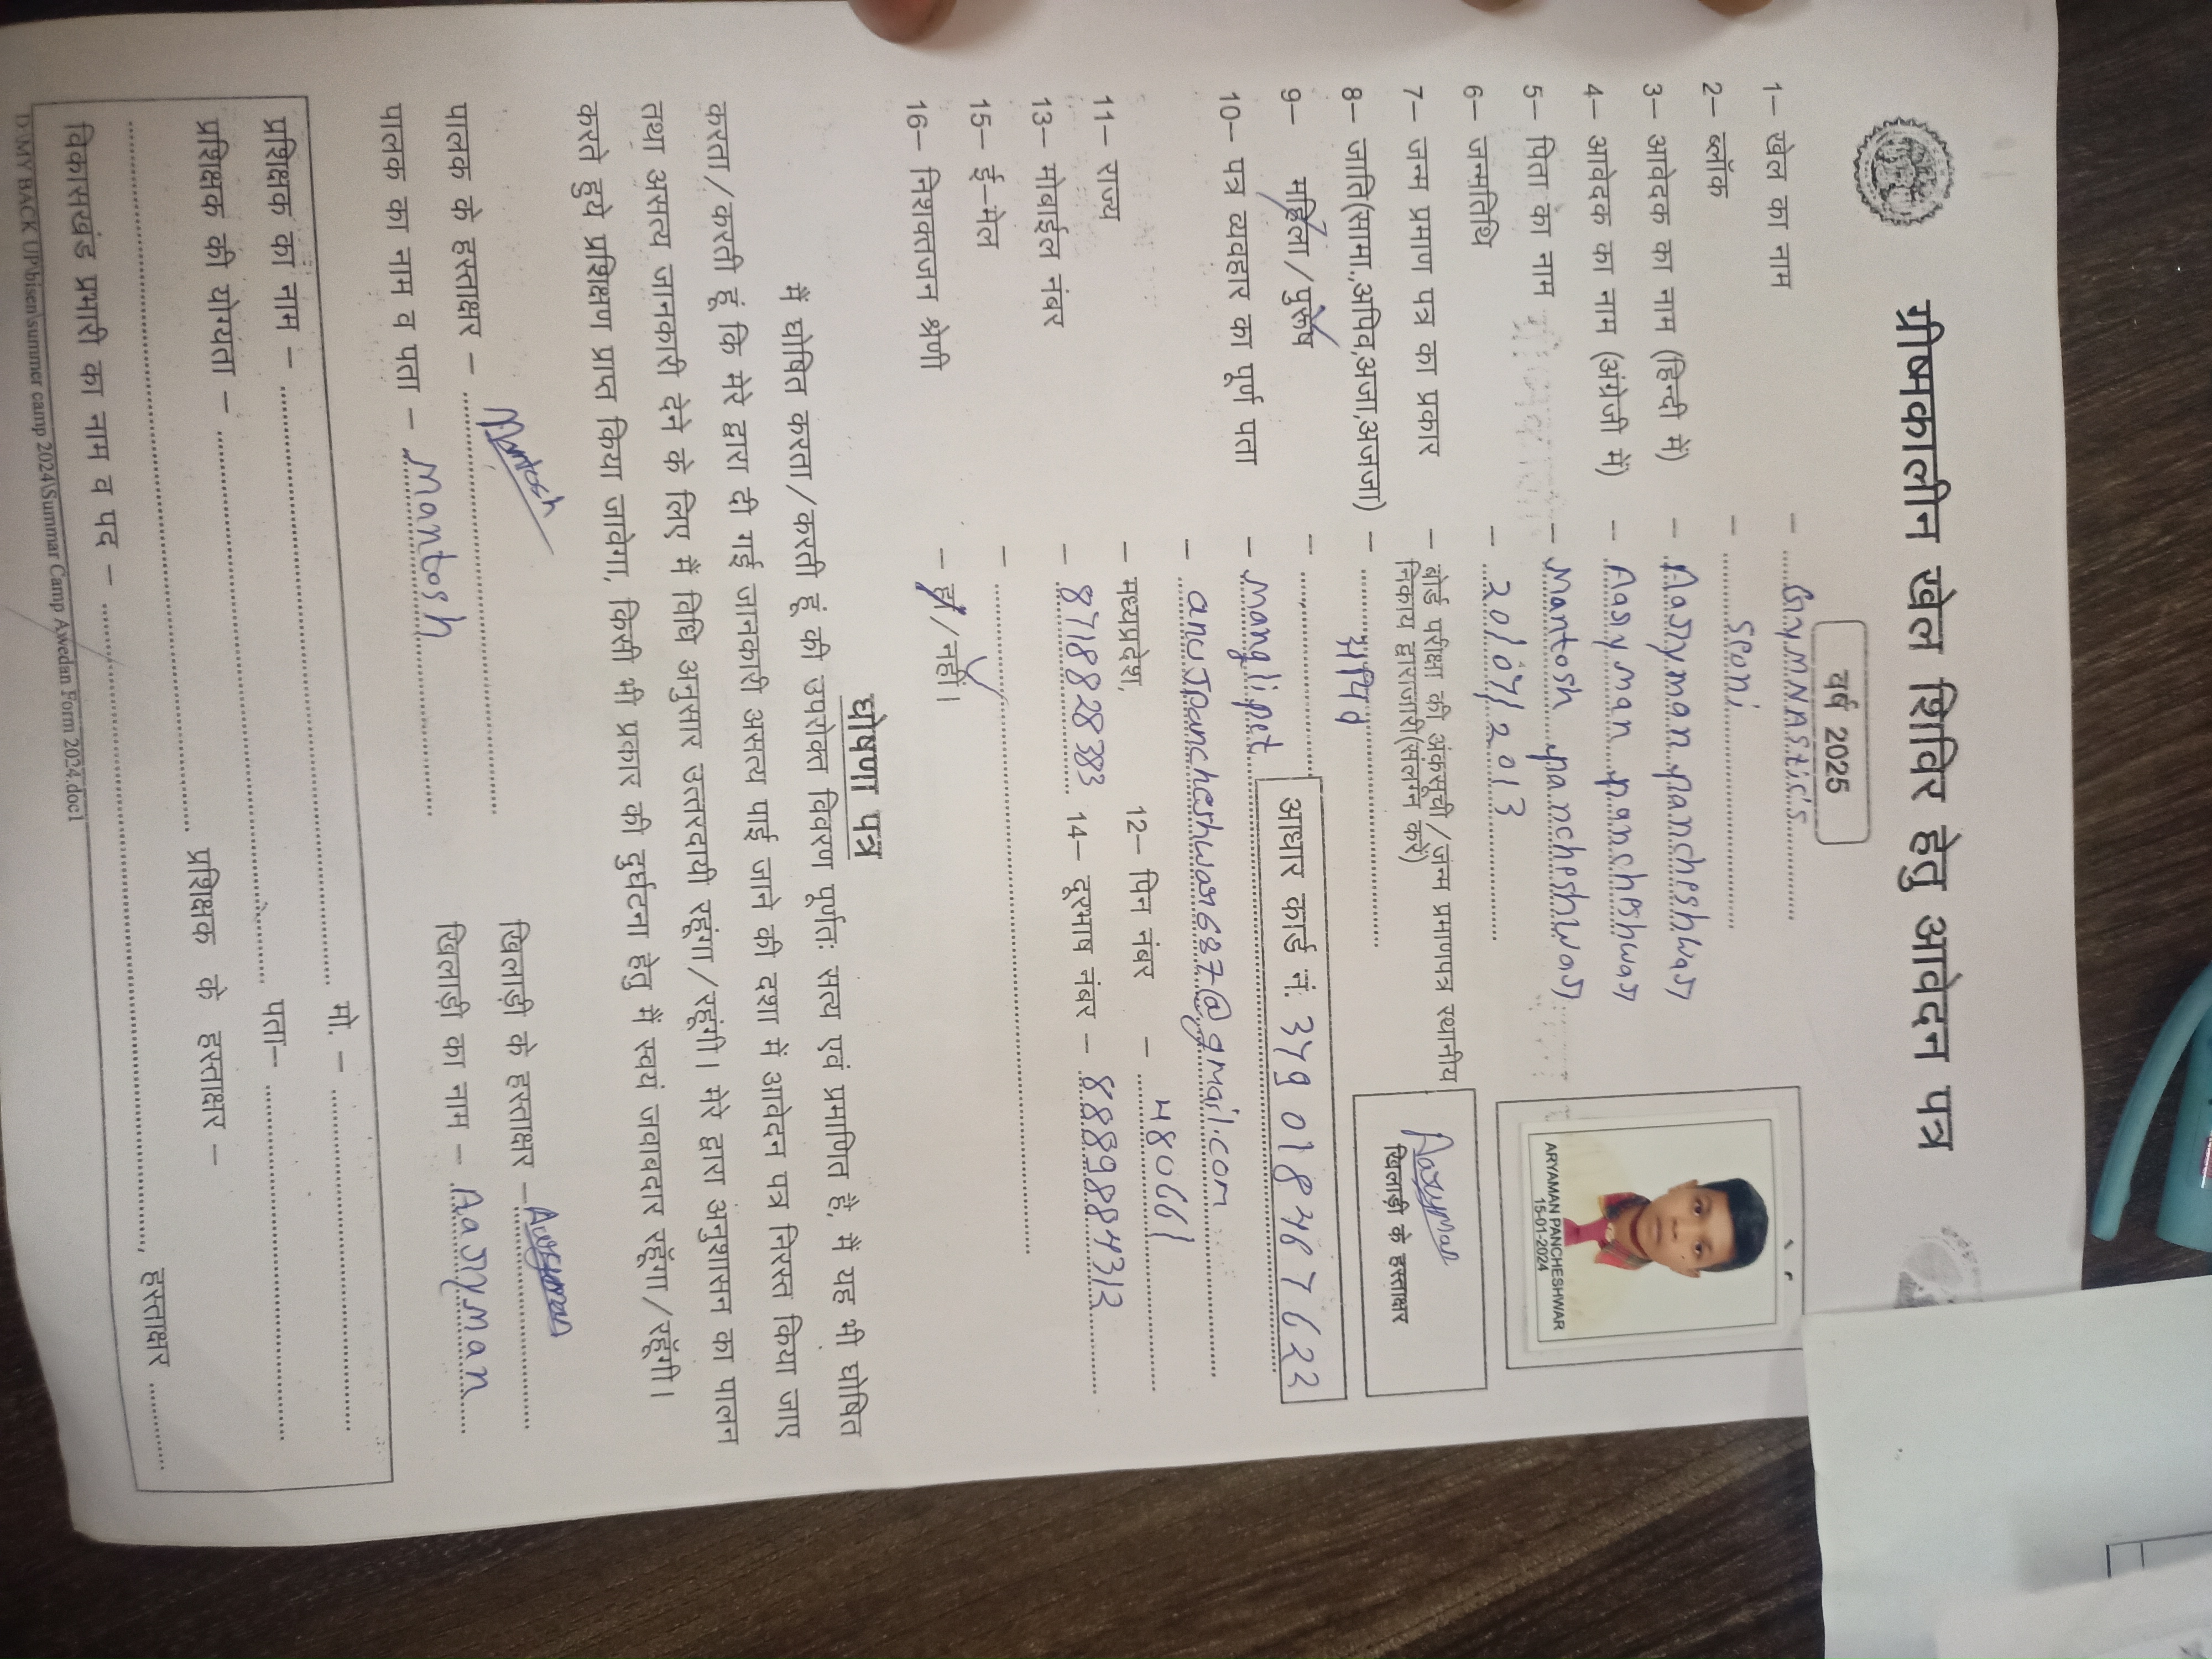 ग्रीष्मकालीन खेल शिविर हेतु आवेदन पत्र
वर्ष 2025
1– खेल का नाम – GAYMNAStics
2– ब्लॉक – Seoni
3– आवेदक का नाम (हिन्दी में) – Aaryman Pancheshwar
4– आवेदक का नाम (अंग्रेजी में) – Aaryman Pancheshwar
5– पिता का नाम – Mantosh Pancheshwar
6– जन्मतिथि – 20/07/2013
7– जन्म प्रमाण पत्र का प्रकार – बोर्ड परीक्षा की अंकसूची/जन्म प्रमाणपत्र स्थानीय
निकाय द्वाराजारी(संलग्न करें)
ARYAMAN PANCHESHWAR
15-01-2024
8– जाति(सामा.,अपिव,अजा,अजजा) – अपिव
खिलाड़ी के हस्ताक्षर
9– महिला/पुरूष –
आधार कार्ड नं. 379018467622
10– पत्र व्यवहार का पूर्ण पता – Manglipet
– anujpancheshwar687@gmail.com
11– राज्य – मध्यप्रदेश, 12– पिन नंबर – 480661
13– मोबाईल नंबर – 8718828383 14– दूरभाष नंबर – 8889884312
15– ई–मेल –
16– निशक्तजन श्रेणी – हॉ/नहीं।
घोषणा पत्र
में घोषित करता/करती हूं की उपरोक्त विवरण पूर्णतः सत्य एवं प्रमाणित है, मैं यह भी घोषित
करता/करती हूं कि मेरे द्वारा दी गई जानकारी असत्य पाई जाने की दशा में आवेदन पत्र निरस्त किया जाए
तथा असत्य जानकारी देने के लिए मैं विधि अनुसार उत्तरदायी रहूंगा/रहूंगी। मेरे द्वारा अनुशासन का पालन
करते हुये प्रशिक्षण प्राप्त किया जावेगा, किसी भी प्रकार की दुर्घटना हेतु मैं स्वयं जवाबदार रहूंगा/रहूंगी।
पालक के हस्ताक्षर – Mantosh खिलाड़ी के हस्ताक्षर –
पालक का नाम व पता – Mantosh खिलाड़ी का नाम – Aaryman
प्रशिक्षक का नाम – मो. –
प्रशिक्षक की योग्यता – पता–
प्रशिक्षक के हस्ताक्षर –
विकासखंड प्रभारी का नाम व पद – , हस्ताक्षर
D:\MY BACK UP\bisen\summer camp 2024\Summar Camp Awedan Form 2024.doc1